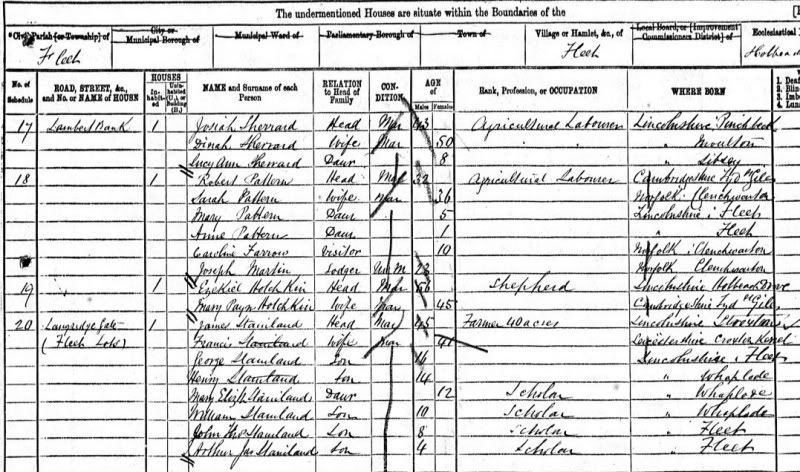 The undermentioned Houses are situate within the Boundaries of the
Civil Parish [or Township] of City or Municipal Borough of Municipal Ward of Parliamentary Borough of Town of Village or Hamlet, &c., of Local Board, or [Improvement Commissioners District] of Ecclesiastical
Fleet Fleet Holbeach
No. of Schedule ROAD, STREET, &c., and No. or NAME of HOUSE HOUSES Inhabited Uninhabited (U.), or Building (B.) NAME and Surname of each Person RELATION to Head of Family CONDITION AGE of Males Females Rank, Profession, or OCCUPATION WHERE BORN 1. Deaf 2. Blin 3. Imb 4. Lun
17 Lambert Bank 1 Josiah Sherrard Head Mar 43 Agricultural Labourer Lincolnshire Pinchbeck
Dinah Sherrard Wife Mar 50 " Moulton
Lucy Ann Sherrard Daur 8 " Sibsey
18 1 Robert Pattern Head Mar 32 Agricultural Labourer Cambridgeshire Tyd St Giles
Sarah Pattern Wife Mar 36 Norfolk Clenchwarton
Mary Pattern Daur 5 Lincolnshire Fleet
Anne Pattern Daur 1 " Fleet
Caroline Farrow Visitor 10 Norfolk Clenchwarton
Joseph Martin Lodger Un M 23 Norfolk Clenchwarton
19 " 1 Ezekiel Hotchkin Head Mar 56 Shepherd Lincolnshire Holbeach Drove
Mary Hotchkin Wife Mar 45 Cambridgeshire Tyd St Giles
20 Gate 1 James Staniland Head Mar 45 Farmer 40 acres Lincolnshire
(Fleet Lots) Francis Staniland Wife Mar 41 Leicestershire
George Staniland Son 16 Lincolnshire Fleet
Henry Staniland Son 14 " Whaplode
Mary Elizth Staniland Daur 12 Scholar " Whaplode
William Staniland Son 10 Scholar " Whaplode
John Thos Staniland Son 8 Scholar " Fleet
Arthur Jas Staniland Son 4 Scholar " Fleet